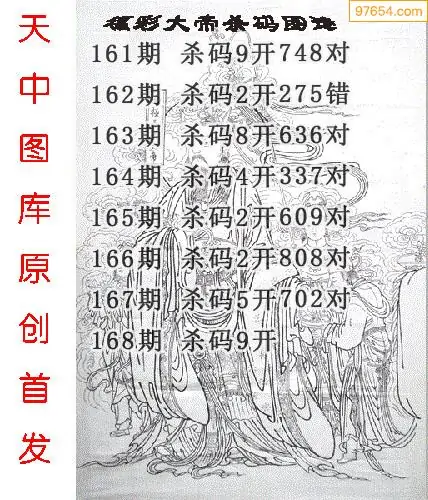 97654.com
福彩大帝杀码图
天中图库原创首发
161期 杀码9开748对
162期 杀码2开275错
163期 杀码8开636对
164期 杀码4开337对
165期 杀码2开609对
166期 杀码2开808对
167期 杀码5开702对
168期 杀码9开